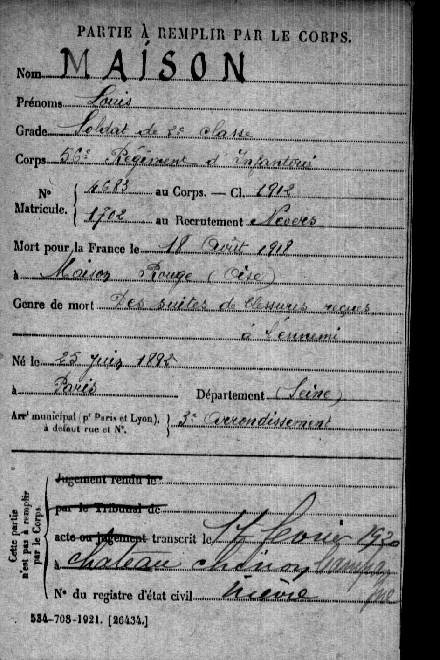 PARTIE À REMPLIR PAR LE CORPS.
Nom MAISON
Prénoms Louis
Grade Soldat de 2e classe
Corps 56e Régiment d'Infanterie
N° Matricule. { 4683 au Corps. — Cl. 1912
1702 au Recrutement Nevers
Mort pour la France le 18 Août 1918
à Maison Rouge (Oise)
Genre de mort Des suites de blessures reçues
à l'ennemi
Né le 25 Juin 1892
à Paris Département (Seine)
Arrt municipal (pr Paris et Lyon), à défaut rue et N°. } 3e arrondissement
Cette partie n'est pas à remplir par le Corps.
Jugement rendu le
par le Tribunal de
acte ou jugement transcrit le 17 1920
à Château Chinon
N° du registre d'état civil Nièvre
534-708-1921. [26434.]